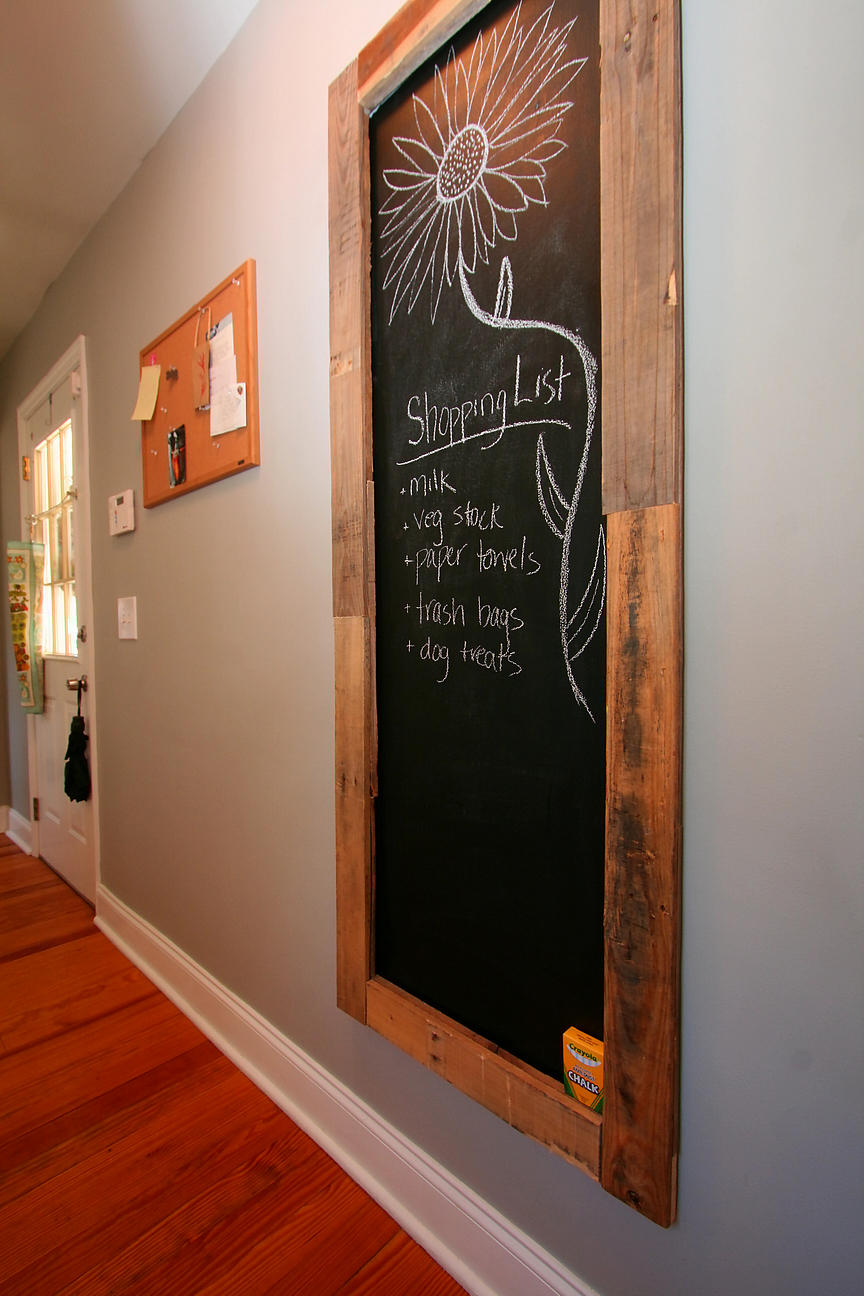 Shopping List
+milk
+veg stock
+paper towels
+trash bags
+dog treats
Crayola
CHALK